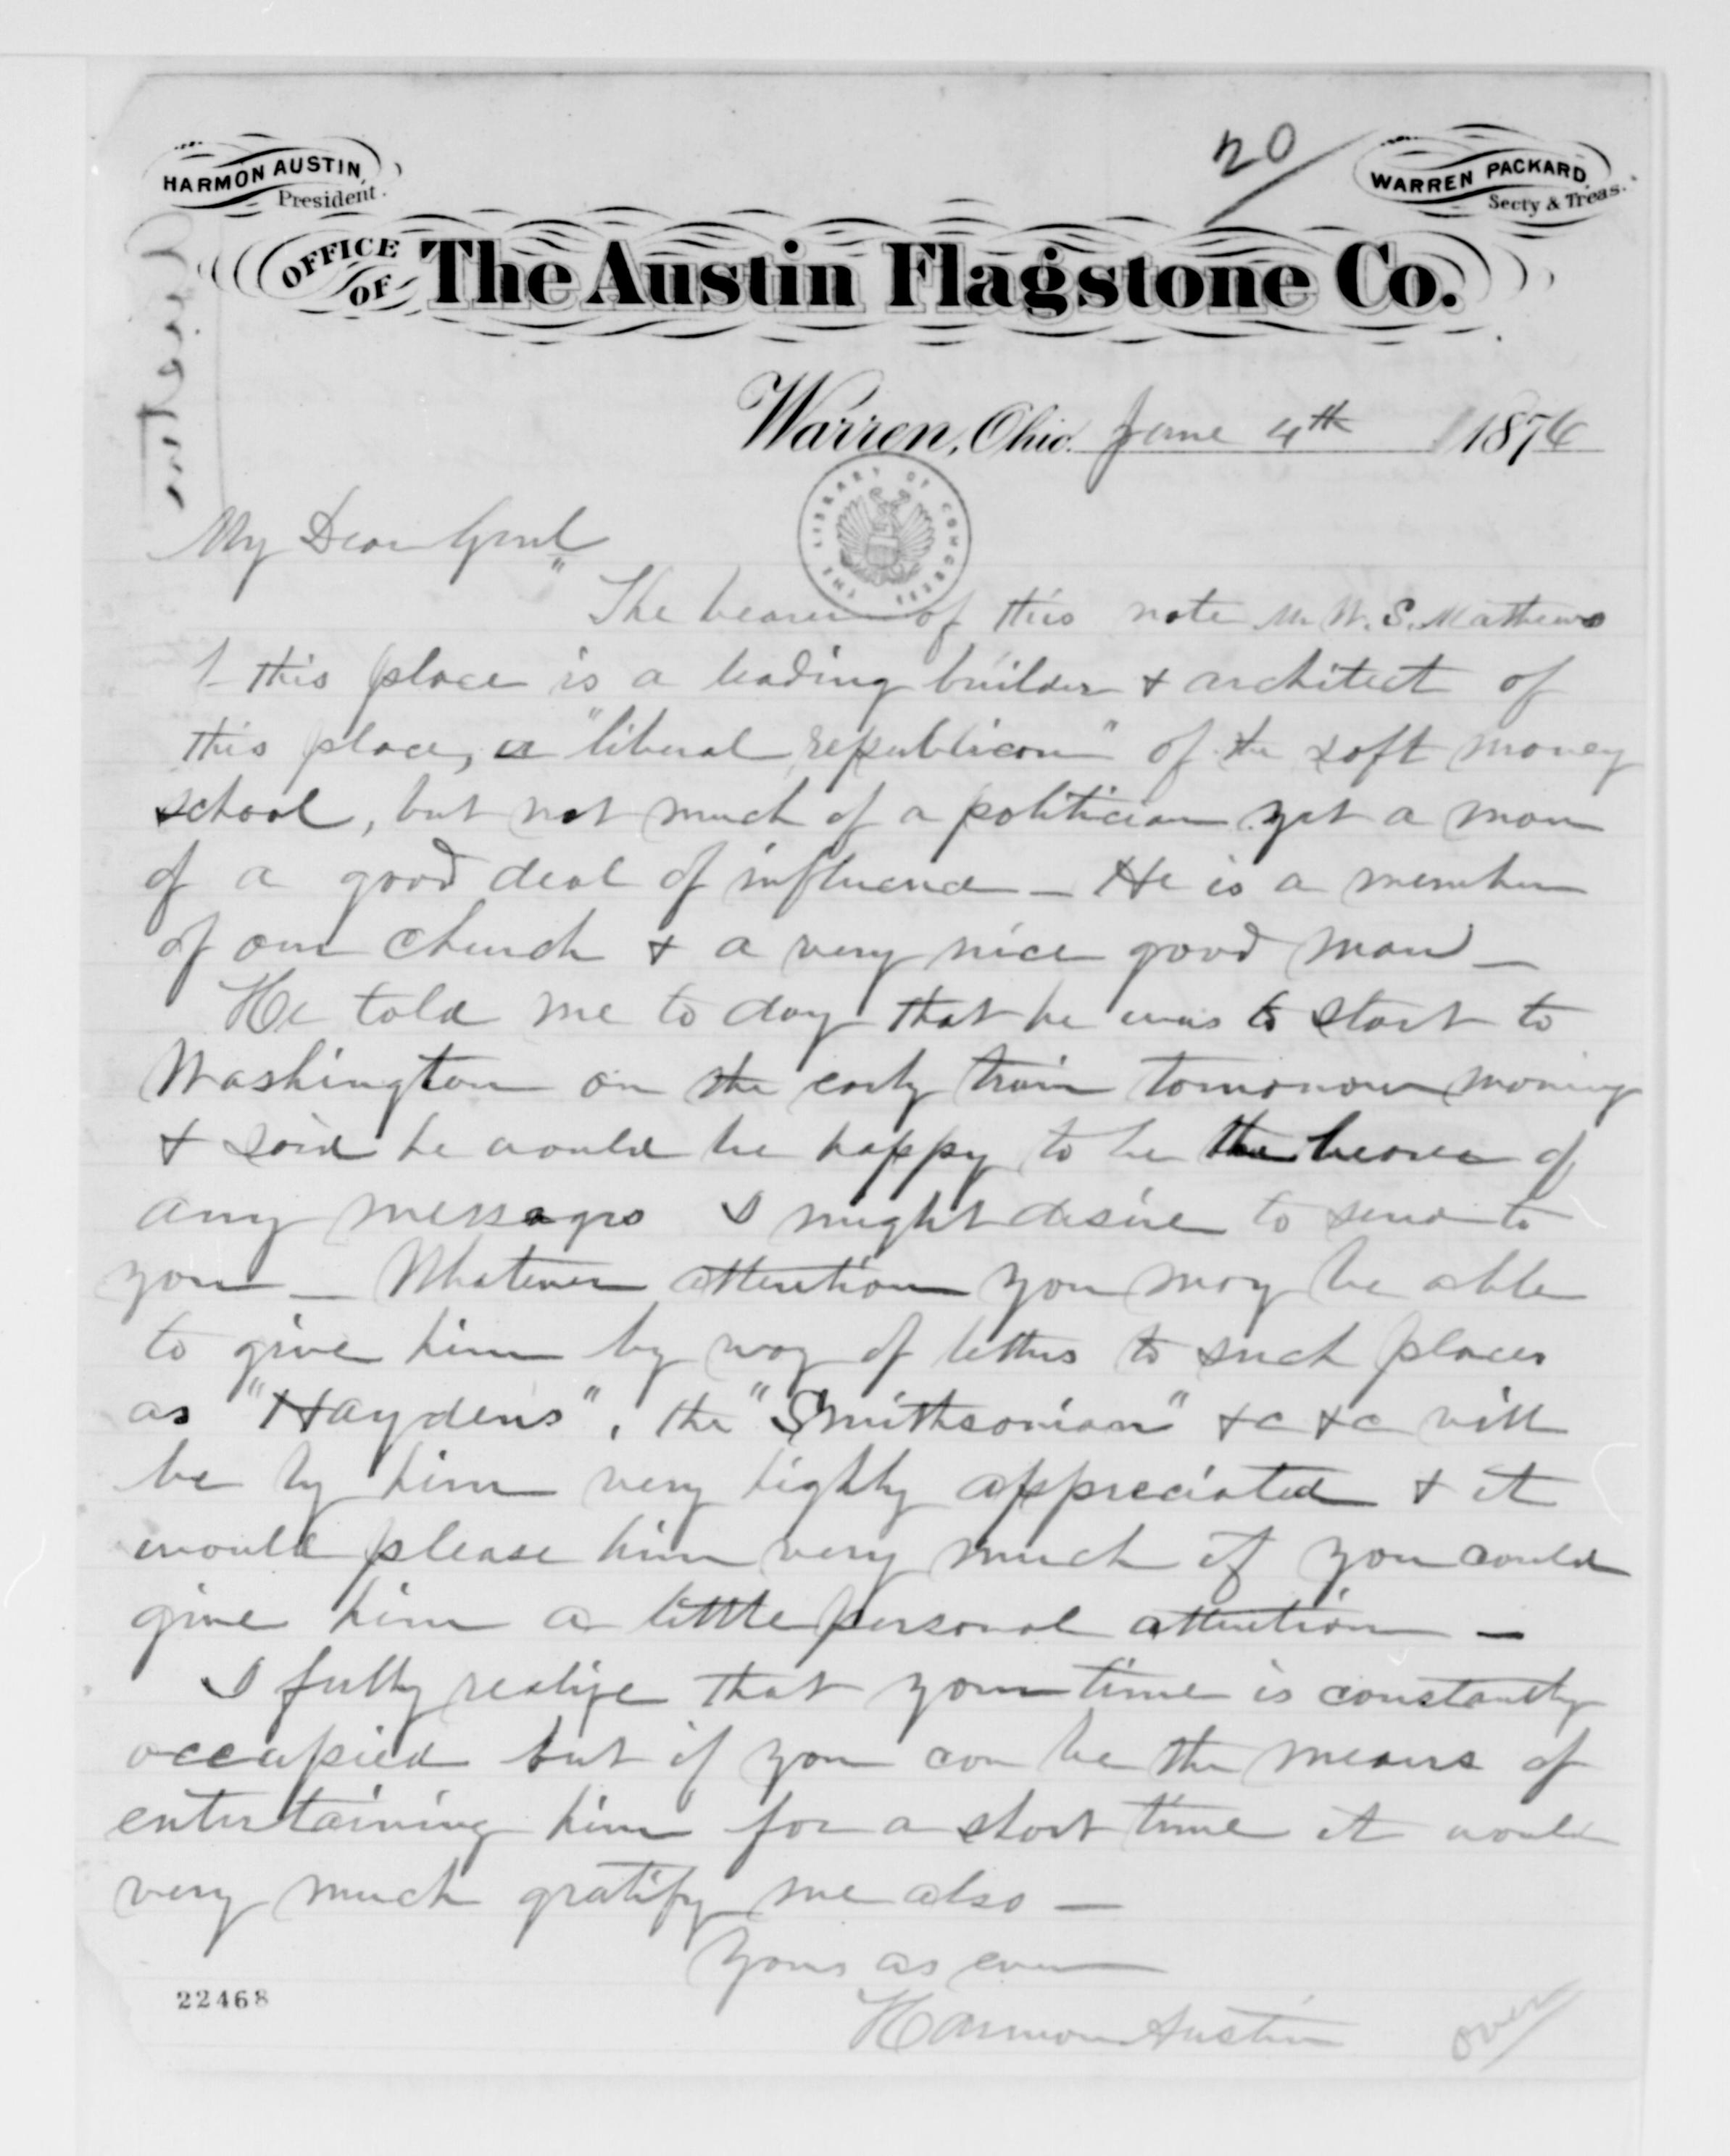 HARMON AUSTIN,
President.
20
WARREN PACKARD
Secty & Treas.
OFFICE OF The Austin Flagstone Co.
Warren, Ohio. June 4th 1876
Austin
THE LIBRARY OF CONGRESS
My Dear Genl
The bearer of this note Mr W. S. Mathews
this place is a leading builder & architect of
this place, a "liberal republican" of the soft money
school, but not much of a politician yet a man
of a good deal of influence — He is a member
of our church & a very nice good man —
He told me to day that he was to start to
Washington on the early train tomorrow morning
& said he would be happy to be the bearer of
any messages I might desire to send to
you — Whatever attention you may be able
to give him by way of letters to such places
as "Haydens", the "Smithsonian" &c &c will
be by him very highly appreciated & it
would please him very much if you could
give him a little personal attention —
I fully realize that your time is constantly
occupied but if you can be the means of
entertaining him for a short time it would
very much gratify me also —
Yours as ever
Harmon Austin
over
22468